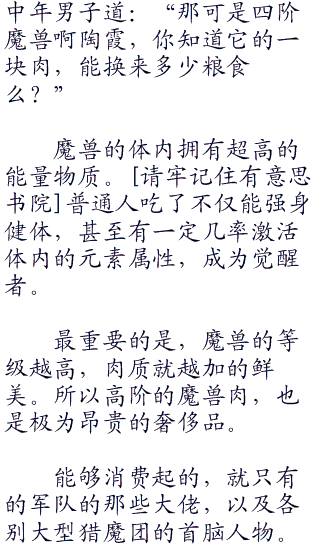 中年男子道：“那可是四阶
魔兽啊陶霞，你知道它的一
块肉，能换来多少粮食
么？”
魔兽的体内拥有超高的
能量物质。[请牢记住有意思
书院]普通人吃了不仅能强身
健体，甚至有一定几率激活
体内的元素属性，成为觉醒
者。
最重要的是，魔兽的等
级越高，肉质就越加的鲜
美。所以高阶的魔兽肉，也
是极为昂贵的奢侈品。
能够消费起的，就只有
的军队的那些大佬，以及各
别大型猎魔团的首脑人物。